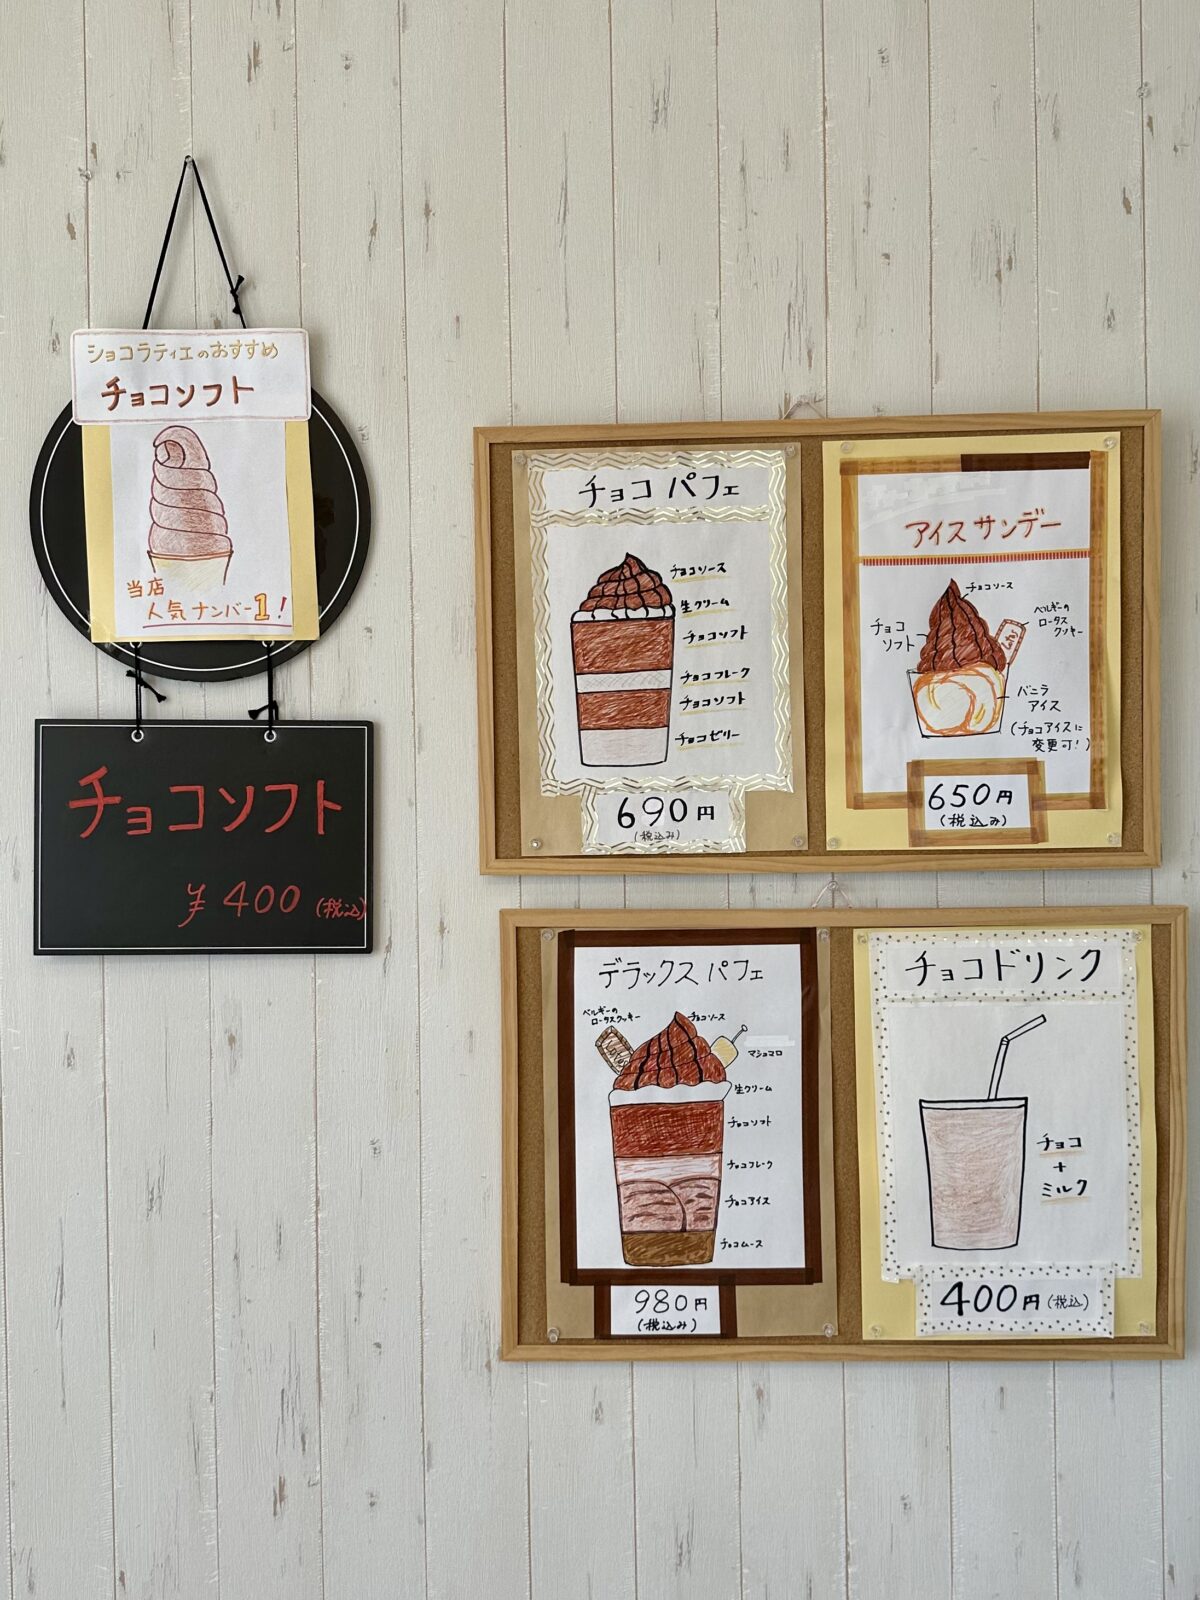 ショコラティエのおすすめ
チョコソフト
当店
人気ナンバー1!
チョコソフト
¥400(税込)
チョコパフェ
チョコソース
生クリーム
チョコソフト
チョコフレーク
チョコソフト
チョコゼリー
690円
(税込み)
アイスサンデー
チョコソース
チョコ
ソフト
ベルギーの
ロータス
クッキー
バニラ
アイス
(チョコアイスに
変更可!)
650円
(税込み)
デラックスパフェ
ベルギーの
ロータスクッキー
チョコソース
マシュマロ
生クリーム
チョコソフト
チョコフレーク
チョコアイス
チョコムース
980円
(税込み)
チョコドリンク
チョコ
+
ミルク
400円(税込)